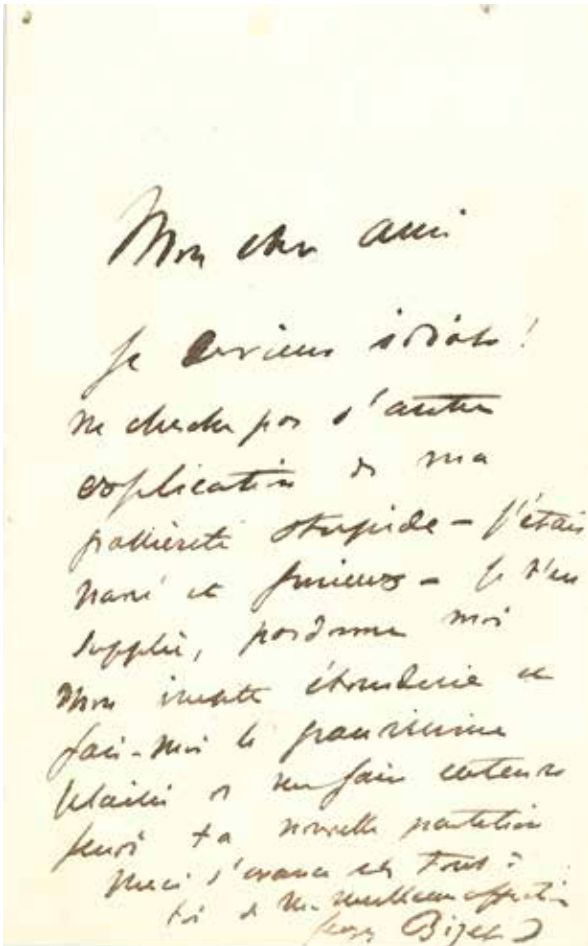 Mon cher ami
Je deviens idiot !
ne cherche pas d'autre
explication de ma
grossièreté stupide – j'étais
navré et furieux – je t'en
supplie, pardonne moi
Mon étourderie et
fais-moi le grandissime
plaisir de me faire entendre
jeudi ta nouvelle partition
Merci d'avance et tout à
toi de ma meilleure affection
Georges Bizet